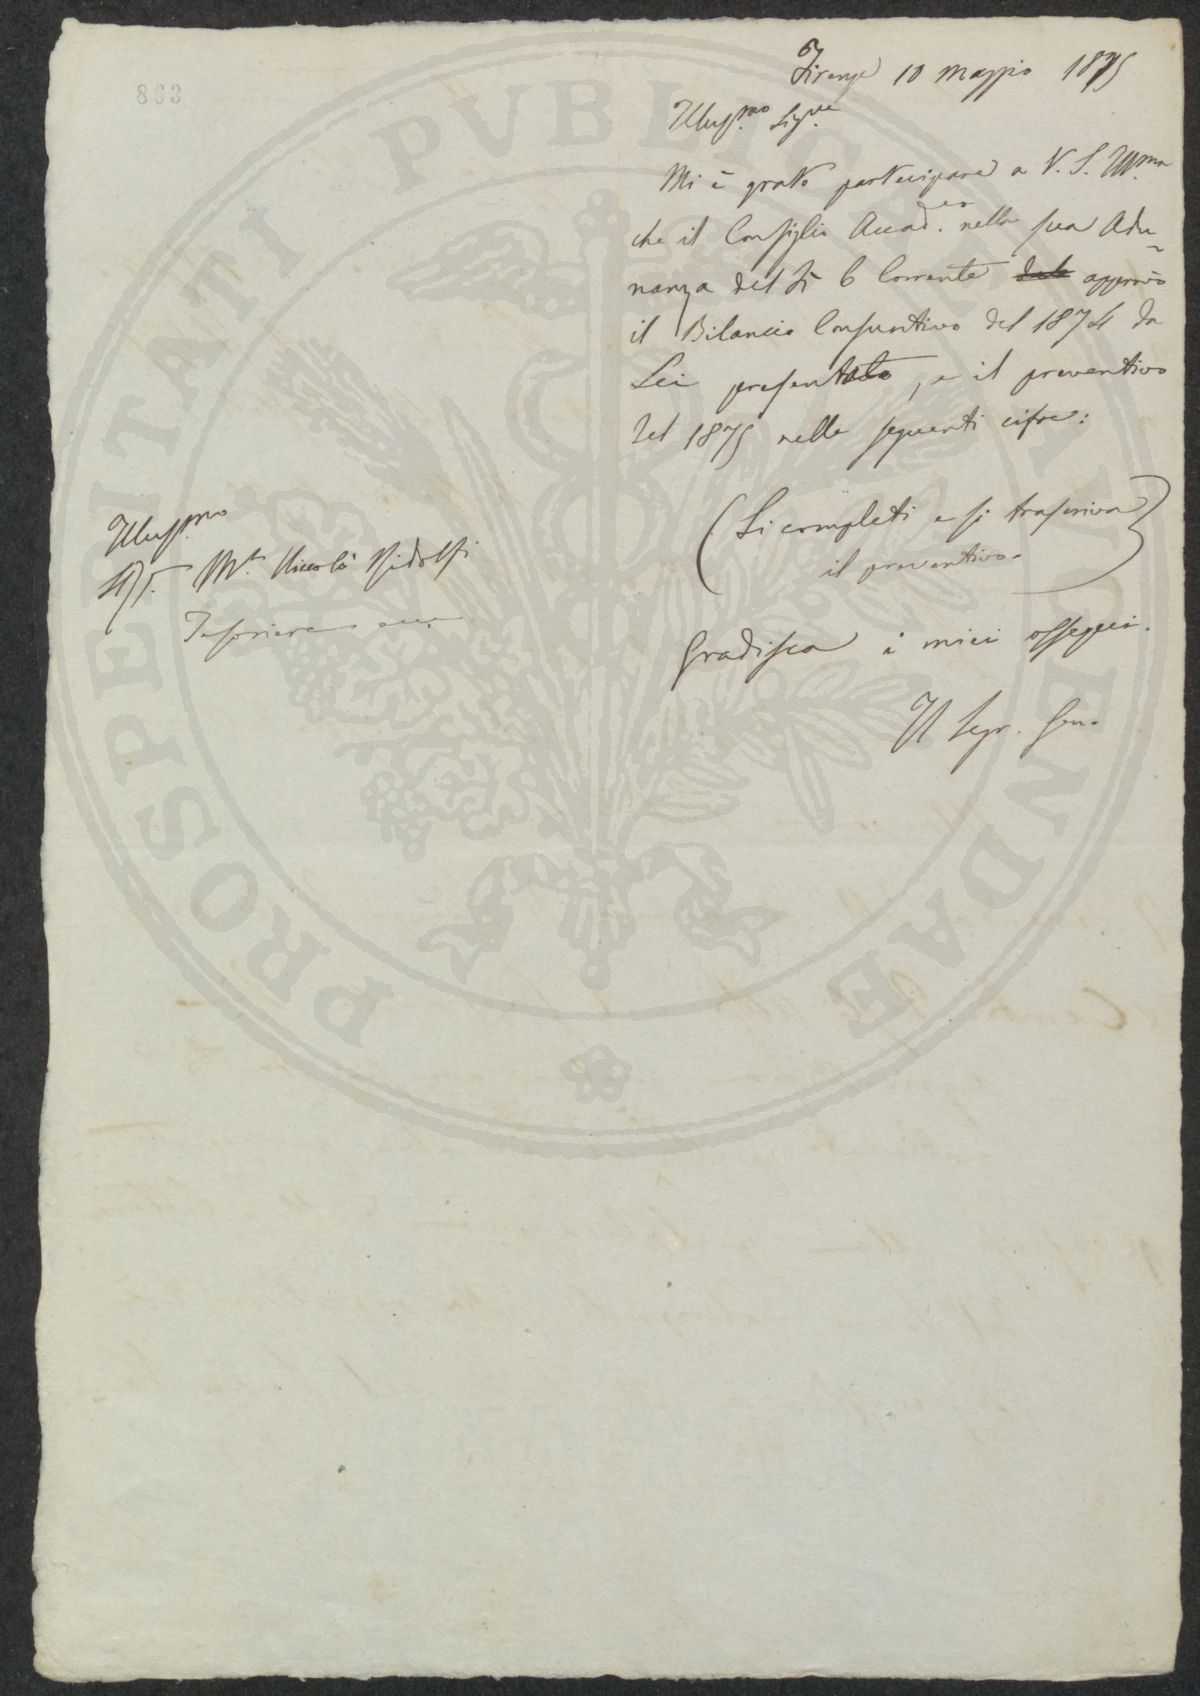 863
Firenze 10 maggio 1875
Illus.mo Sig.re
Mi è grato partecipare a V. S. Ill.ma
che il Consiglio Accad.co nella sua Adu-
nanza del dì 6 Corrente approvò
il Bilancio Consuntivo del 1874 da
Lei presentato, e il preventivo
del 1875 nelle seguenti cifre:
(Si completi e si trascriva
il preventivo.)
Gradisca i miei ossequi.
Il Segr. Gen.
Illus.mo
Sig. M.se Niccolò Ridolfi
Tesoriere ecc.
PROSPERITATI PVBLICAE AVGENDAE